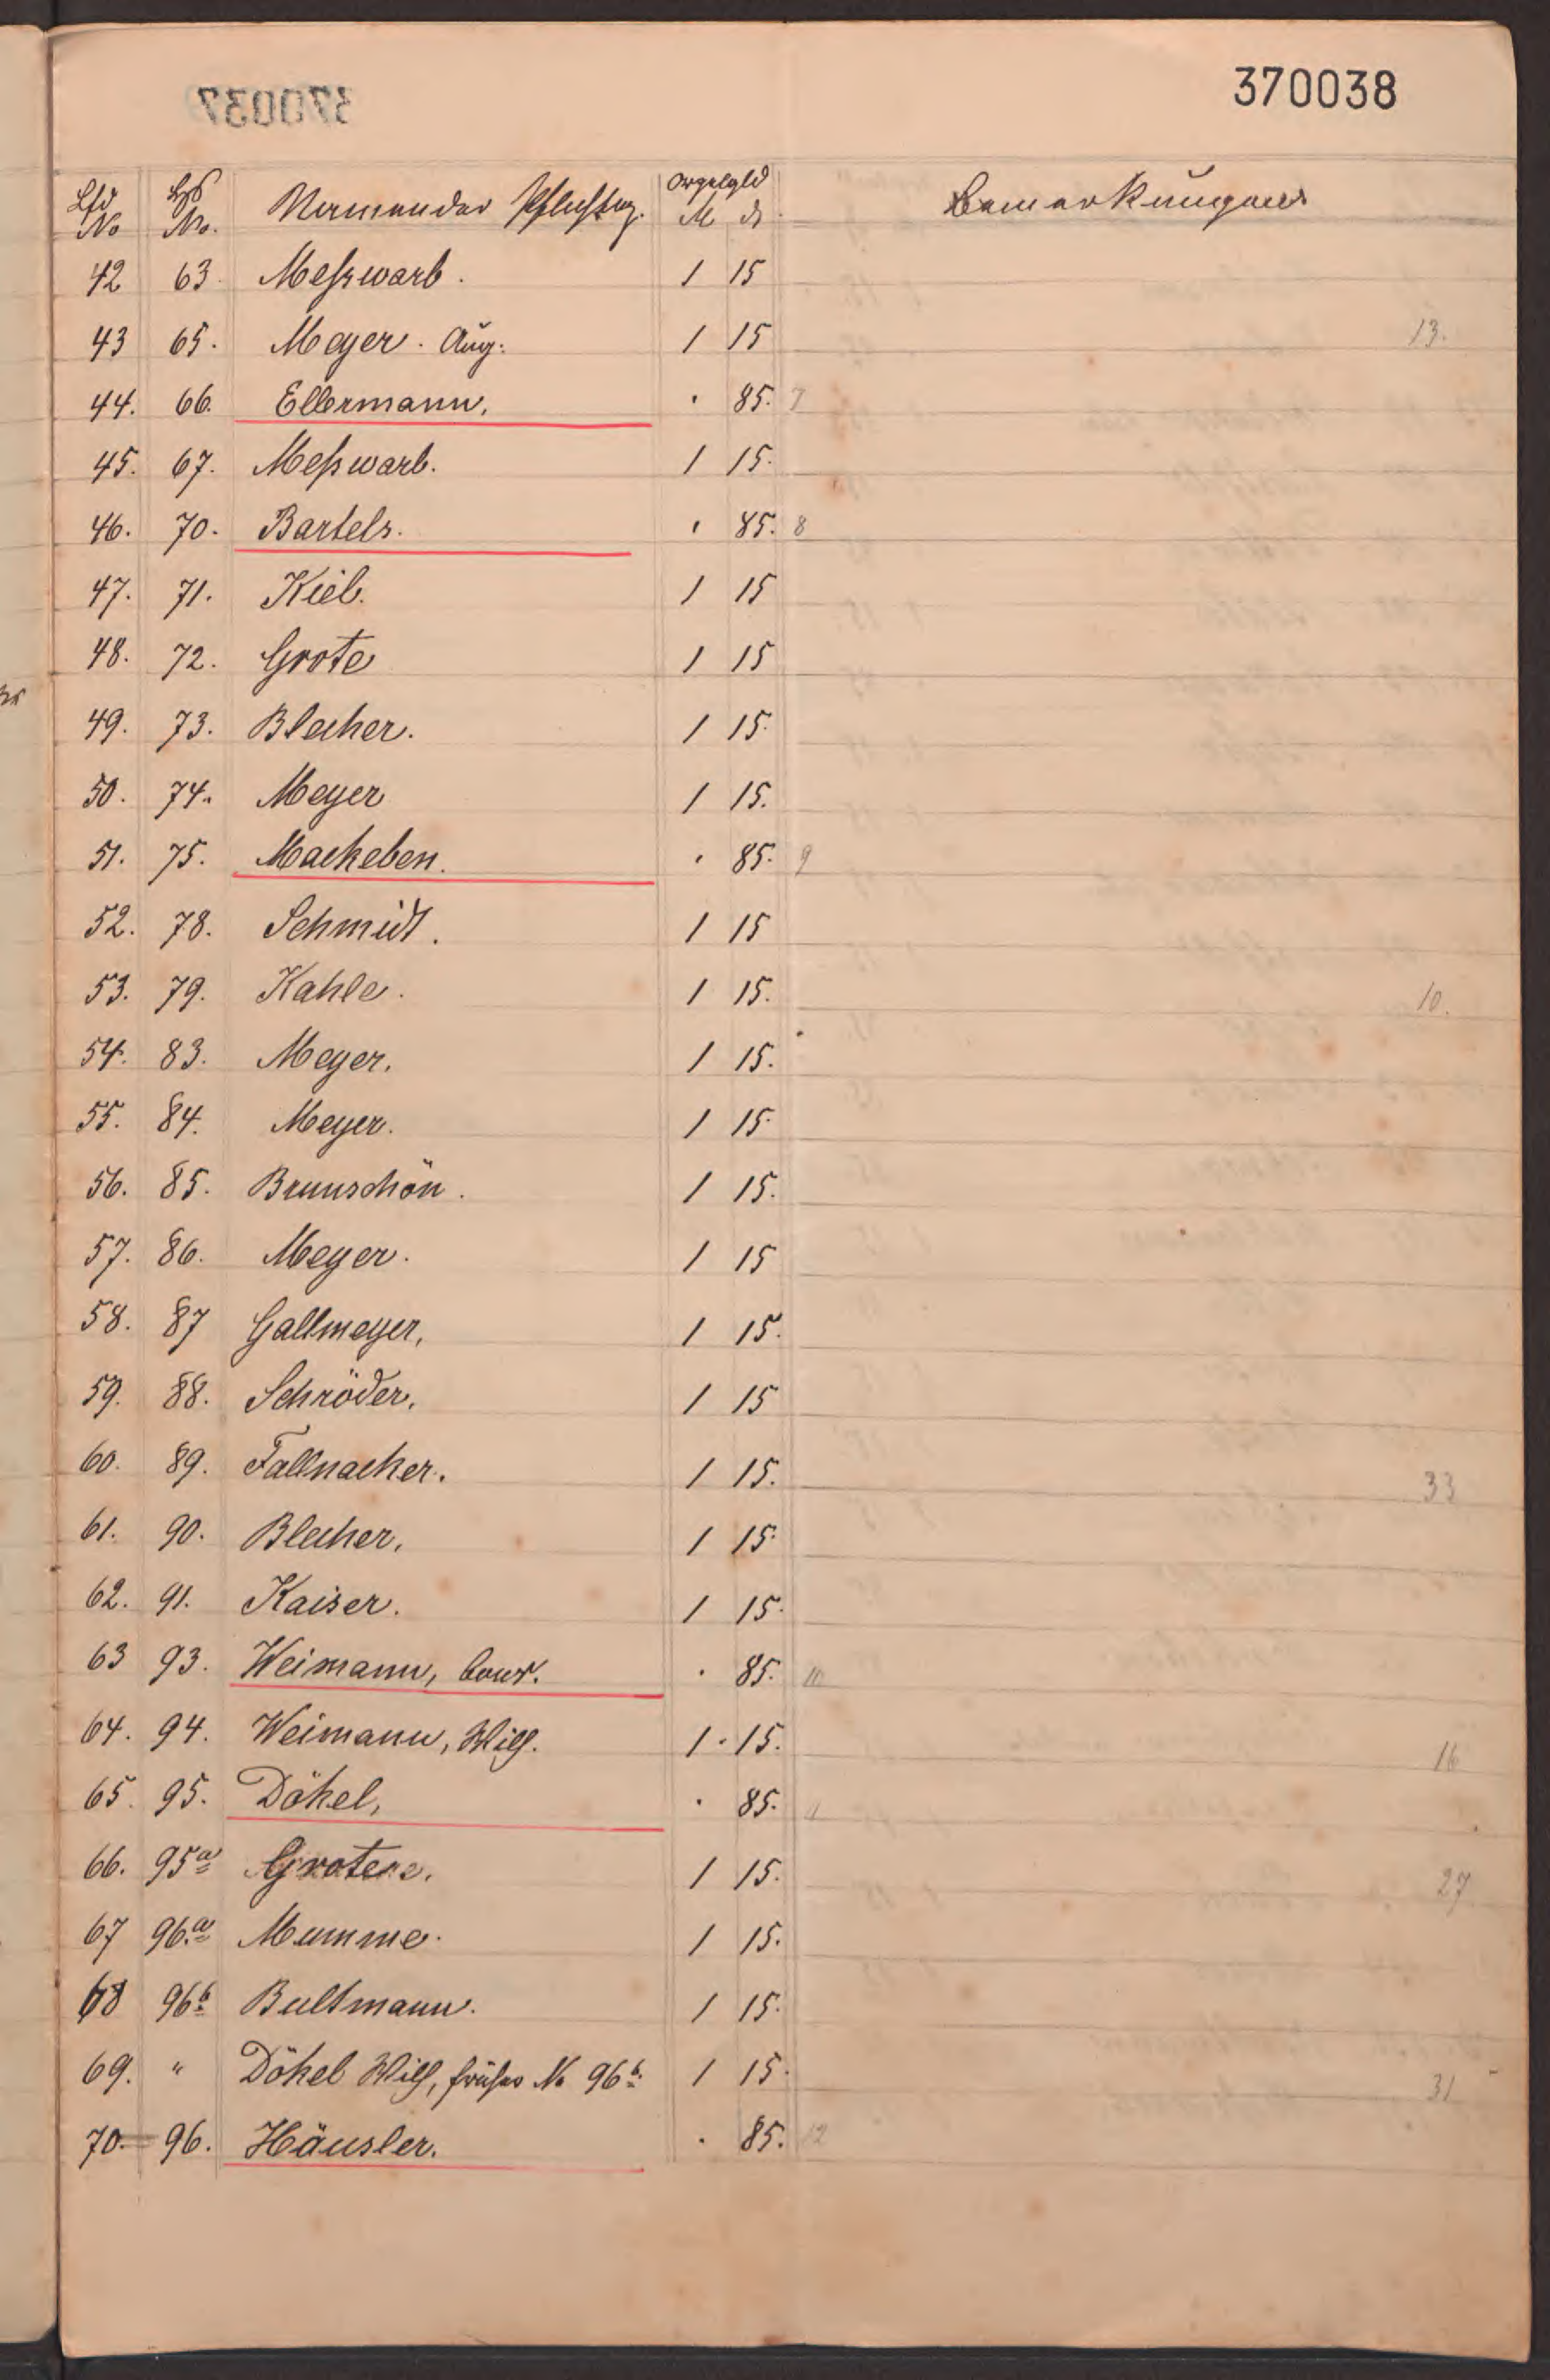 370038
Lfd No Hs No. Namen der Pflichtig. Orgelgld M ₰ Bemerkungen
42 63 Meßwarb. 1 15
43 65. Meyer. Aug: 1 15 13.
44. 66. Ellermann, . 85. 7
45. 67. Meßwarb. 1 15.
46. 70. Bartels. . 85. 8
47. 71. Kiel. 1 15
48. 72. Grote 1 15
49. 73. Blecher. 1 15.
50. 74. Meyer 1 15.
51. 75. Mackeben. . 85. 9
52. 78. Schmidt. 1 15
53. 79. Kahle. 1 15. 10.
54. 83. Meyer. 1 15.
55. 84. Meyer. 1 15.
56. 85. Brunschön. 1 15.
57. 86. Meyer. 1 15
58. 87 Gallmeyer, 1 15.
59. 88. Schröder, 1 15
60. 89. Fallnacker. 1 15. 33
61. 90. Blecher, 1 15.
62. 91. Kaiser. 1 15.
63 93. Weimann, Conr. . 85. 10
64. 94. Weimann, Wilh. 1 . 15. 16
65. 95. Döhel, . 85. 11
66. 95a Grote 1 15. 27
67 96.a Mumme. 1 15.
68 96b Bultmann. 1 15.
69. " Döhel Wilh, früher No 96b. 1 15. 31
70. 96. Häusler. . 85. 12